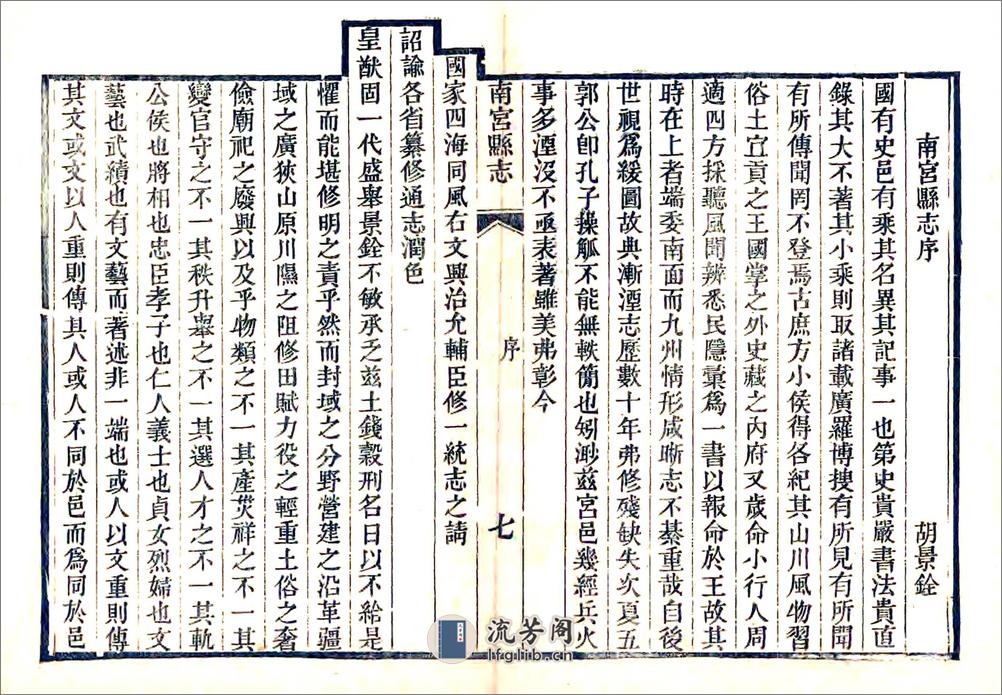 南宮縣志序
胡景銓
國有史邑有乘其名異其記事一也第史貴嚴書法貴直
錄其大不著其小乘則取諸載廣羅博搜有所見有所聞
有所傳聞罔不登焉古庶方小侯得各紀其山川風物習
俗土宜貢之王國掌之外史藏之內府又歲命小行人周
適四方採聽風聞辨悉民隱彙爲一書以報命於王故其
時在上者端委南面而九州情形咸晰志不綦重哉自後
世視爲緩圖故典漸湮志歷數十年弗修殘缺失次夏五
郭公卽孔子操觚不能無軼簡也矧渺兹宮邑幾經兵火
事多湮沒不亟表著雖美弗彰今
南宮縣志
序
七
國家四海同風右文興治允輔臣修一統志之請
詔諭各省纂修通志潤色
皇猷固一代盛舉景銓不敏承乏兹土錢穀刑名日以不給是
懼而能堪修明之責乎然而封域之分野營建之沿革疆
域之廣狹山原川隰之阻修田賦力役之輕重土俗之奢
儉廟祀之廢興以及乎物類之不一其產災祥之不一其
變官守之不一其秩升舉之不一其選人才之不一其軌
公侯也將相也忠臣孝子也仁人義士也貞女烈婦也文
藝也武績也有文藝而著述非一端也或人以文重則傳
其文或文以人重則傳其人或人不同於邑而爲同於邑
流芳阁
lfglib.cn